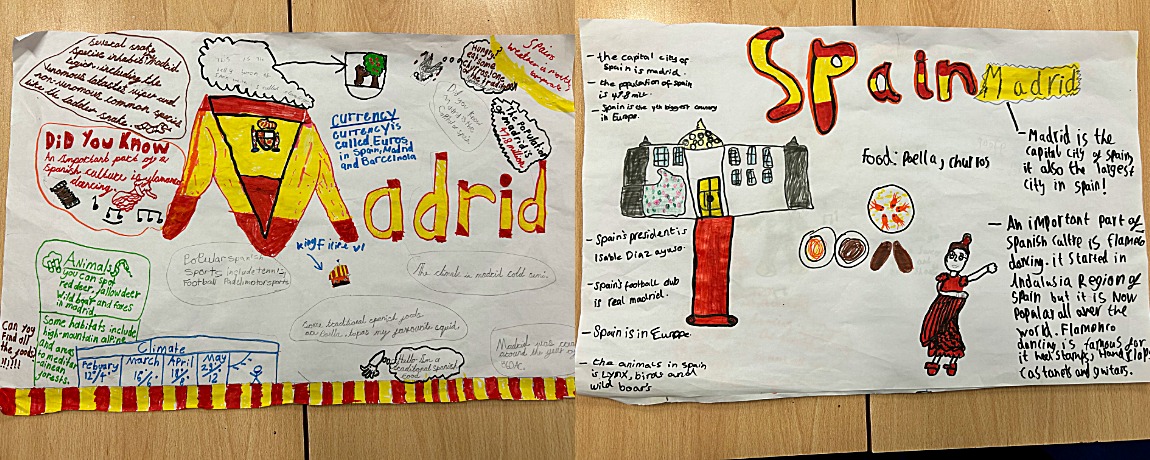 Several snake
species inhabit madrid
region including the
venomous lataste viper and
non-venomous common species
like the ladder snake.
DiD You Know
An Important part of a
Spanish culture is flamanco
dancing.
Hungry?
Spain
weather is mostly
The population
of madrid is
47.8 million
CURRENCY
currency is
called Euros
in Spain, Madrid
and Barcelnola
Madrid
king Filipe VI
Animals
you can spot
red deer, fallow deer
Wild boar and foxes
in madrid
Some habitats include
high-mountain alpine
and areas
to mediter
-ainean
forests.
Can you
find all
the foods
!!!!!
Polular spanish
Sports include tennis,
Football Padel motorsports
The climate in madrid cold semi.
Some traditional spanish foods
are Paella, tapas my favourate squid.
Hello I'm a
traditional spanish
food
Madrid was
around the year
860AC.
Climate
Febuary
March
April
May
Spain
Madrid
- the capital city of
Spain is madrid.
- the population of Spain
is 47.8 mill.
- Spain is the 4th biggest country
in Europe.
Food: Paella, churros
- Madrid is the
capital city of Spain,
it also the largest
city in Spain!
- Spain's president is
Isable Diaz ayuso.
- Spain's football club
is real madrid.
- Spain is in Europe.
- the animals in Spain
is Lynx, birds and
wild boars
- An important part of
Spanish cultre is Flameno
dancing. it started in
Andalusia Region of
Spain but it is Now
Popular all over the
world. Flamenro
dancing is famous for
it hand stamps, Hand Claps
Castanets and guitars.